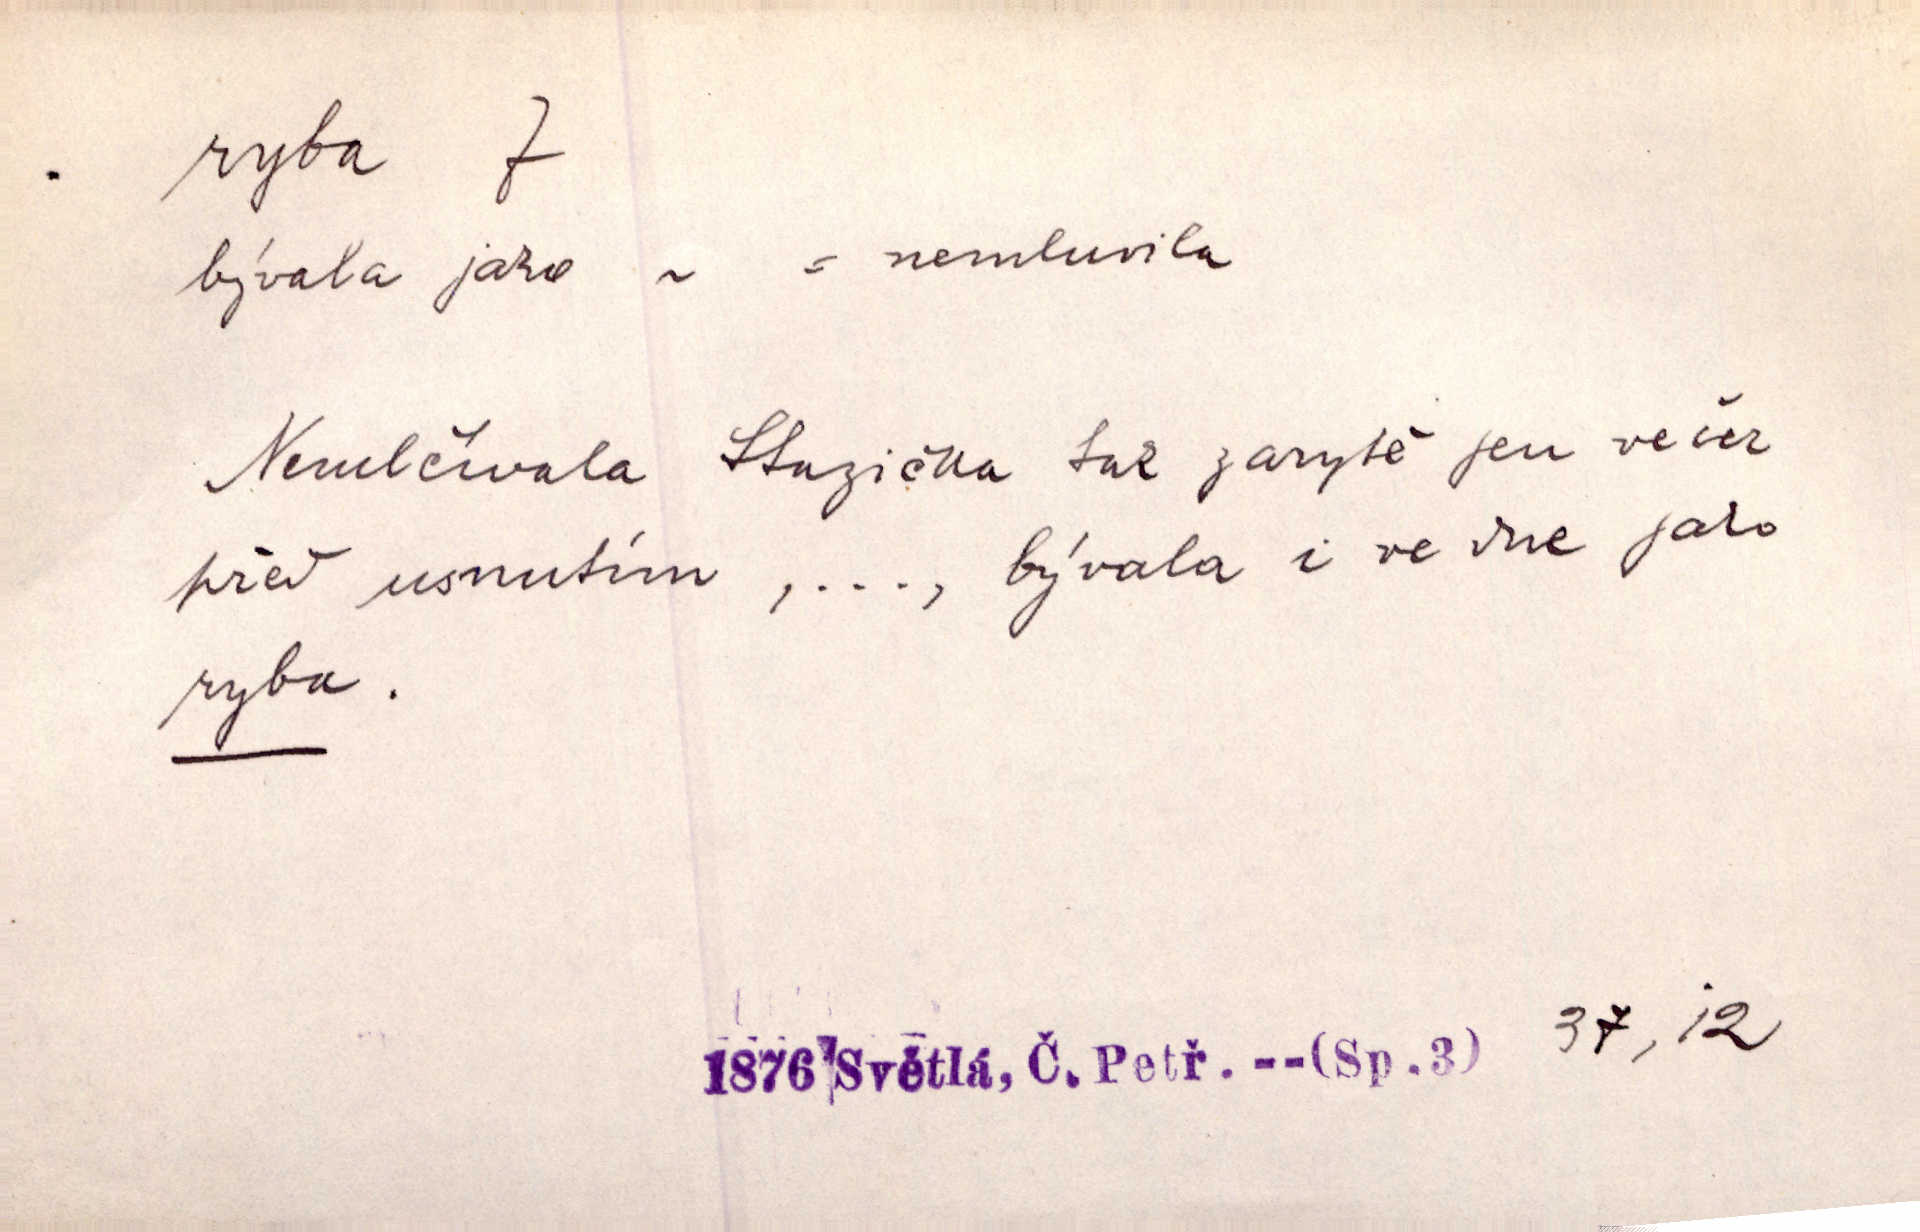 ryba f
bývala jako ~ = nemluvila
Nemlčívala Stázička tak zarytě jen večer
před usnutím , . . . , bývala i ve dne jako
ryba .
1876 Světlá, Č. Petř. --(Sp.3) 37, 12